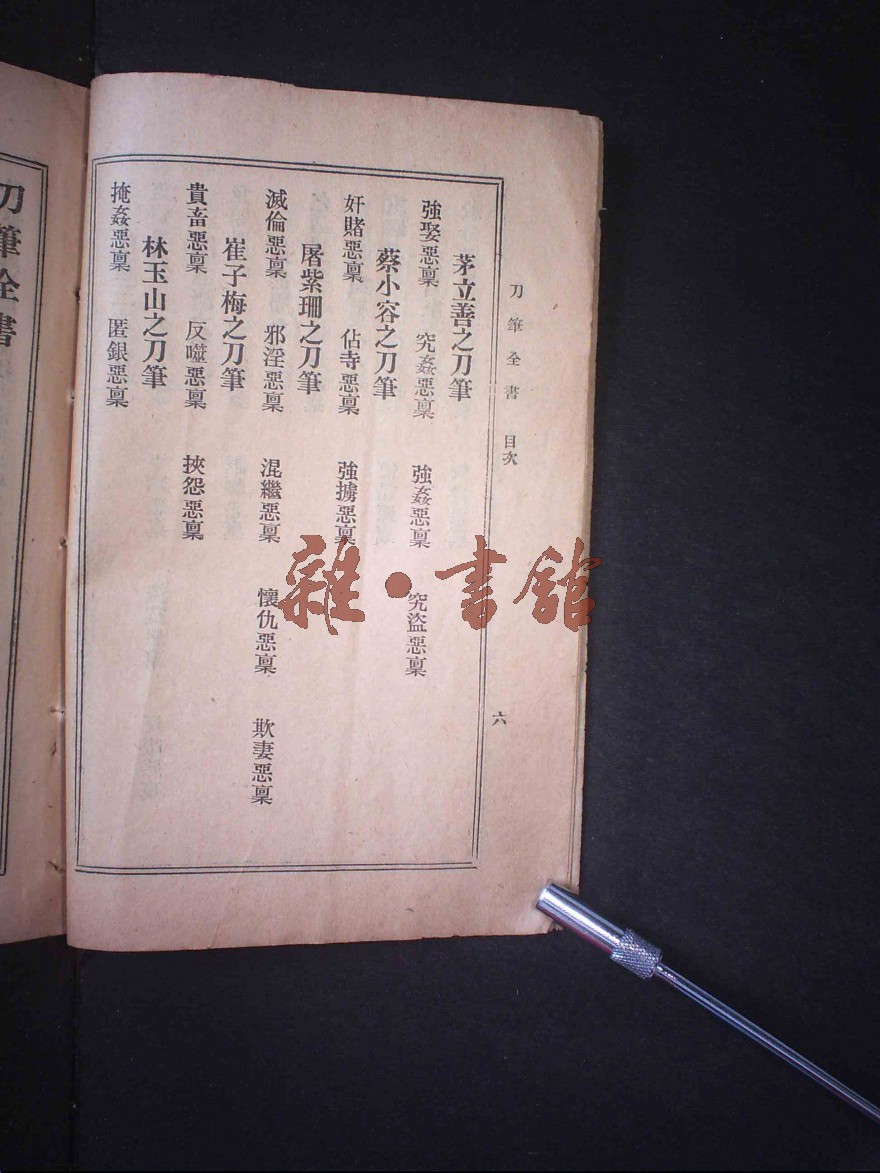 刀筆全書 目次
六
茅立善之刀筆
強娶惡稟 究姦惡稟 強姦惡稟 究盜惡稟
蔡小容之刀筆
奸賭惡稟 佔寺惡稟 強擄惡稟
屠紫珊之刀筆
滅倫惡稟 邪淫惡稟 混繼惡稟 懷仇惡稟 欺妻惡稟
崔子梅之刀筆
貴畜惡稟 反噬惡稟 挾怨惡稟
林玉山之刀筆
掩姦惡稟 匿銀惡稟
刀筆全書
雜·書館